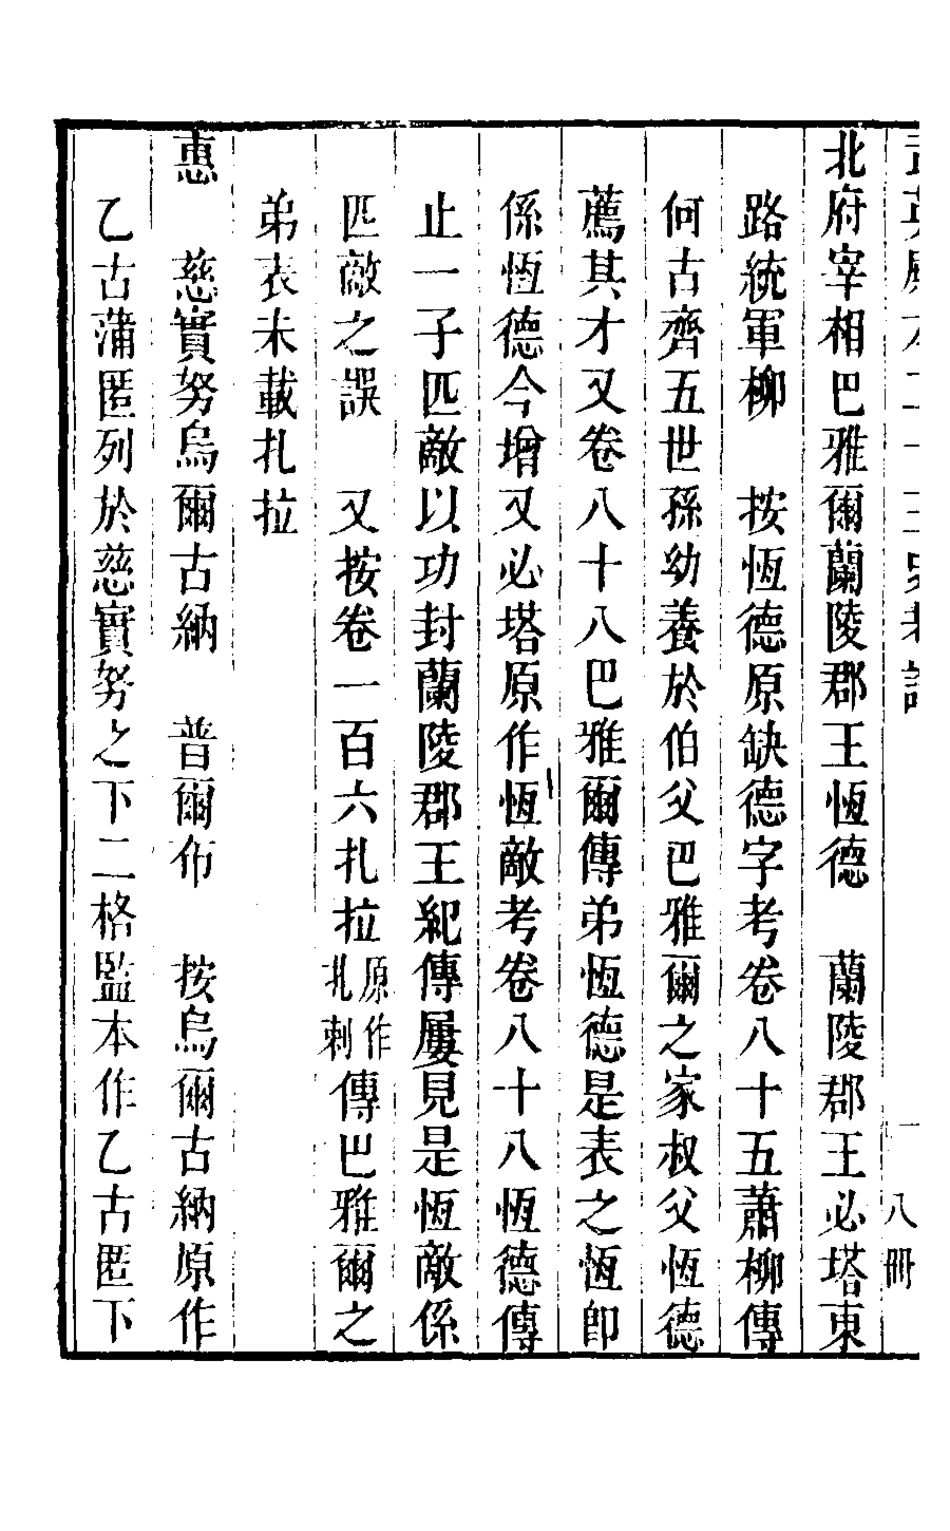 八冊
北府宰相巴雅爾蘭陵郡王恆德　蘭陵郡王必塔東
路統軍柳　按恆德原缺德字考卷八十五蕭柳傳
何古齊五世孫幼養於伯父巴雅爾之家叔父恆德
薦其才又卷八十八巴雅爾傳弟恆德是表之恆卽
係恆德今增又必塔原作恆敵考卷八十八恆德傳
止一子匹敵以功封蘭陵郡王紀傳屢見是恆敵係
匹敵之誤　又按卷一百六扎拉原作扎剌傳巴雅爾之
弟表未載扎拉
惠　慈實努烏爾古納　普爾布　按烏爾古納原作
乙古蒲匿列於慈實努之下二格監本作乙古匿下